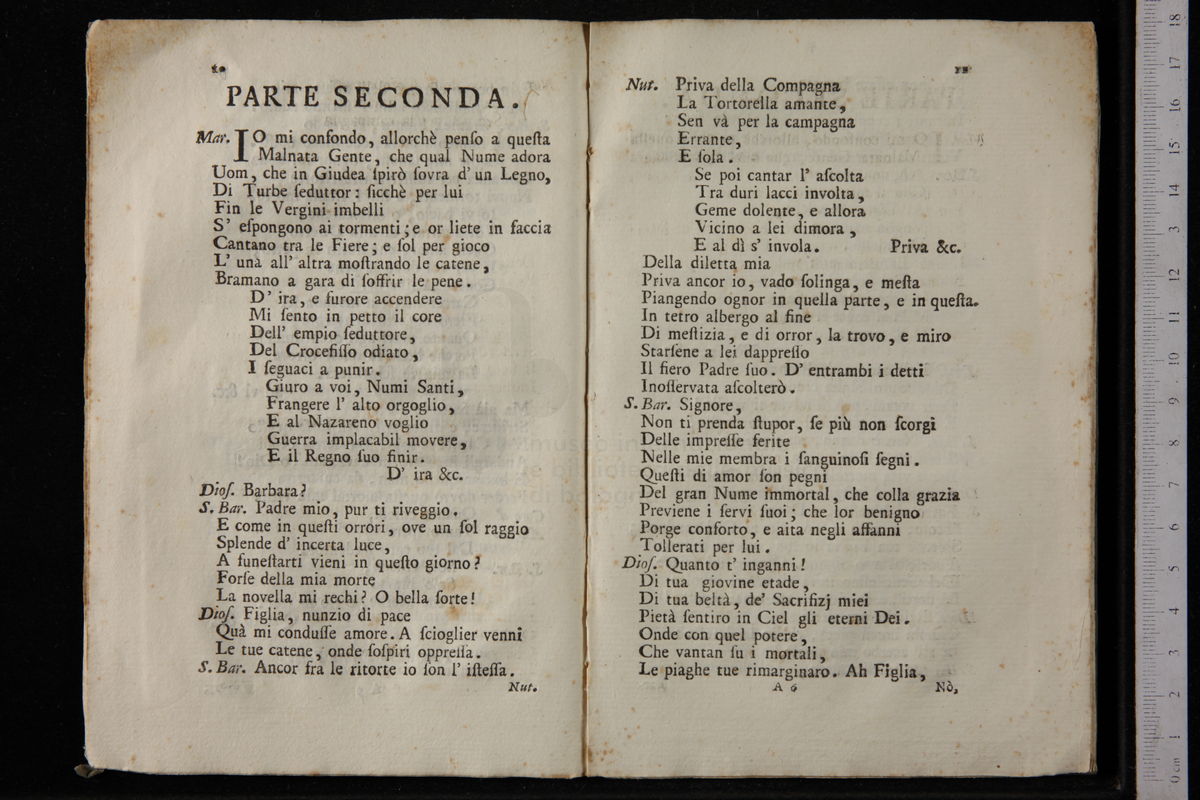 10
PARTE SECONDA.
Mar. IO mi confondo, allorchè penſo a queſta
Malnata Gente, che qual Nume adora
Uom, che in Giudea ſpirò ſovra d' un Legno,
Di Turbe ſeduttor: ſicchè per lui
Fin le Vergini imbelli
S' eſpongono ai tormenti; e or liete in faccia
Cantano tra le Fiere; e ſol per gioco
L' una all' altra moſtrando le catene,
Bramano a gara di ſoffrir le pene.
D' ira, e furore accendere
Mi ſento in petto il core
Dell' empio ſeduttore,
Del Crocefiſſo odiato,
I ſeguaci a punir.
Giuro a voi, Numi Santi,
Frangere l' alto orgoglio,
E al Nazareno voglio
Guerra implacabil movere,
E il Regno ſuo finir.
D' ira &c.
Dioſ. Barbara?
S. Bar. Padre mio, pur ti riveggio.
E come in queſti orrori, ove un ſol raggio
Splende d' incerta luce,
A funeſtarti vieni in queſto giorno?
Forſe della mia morte
La novella mi rechi? O bella ſorte!
Dioſ. Figlia, nunzio di pace
Quà mi conduſſe amore. A ſcioglier venni
Le tue catene, onde ſoſpiri oppreſſa.
S. Bar. Ancor fra le ritorte io ſon l' iſteſſa.
Nut.
11
Nut. Priva della Compagna
La Tortorella amante,
Sen và per la campagna
Errante,
E ſola.
Se poi cantar l' aſcolta
Tra duri lacci involta,
Geme dolente, e allora
Vicino a lei dimora,
E al dì s' invola. Priva &c.
Della diletta mia
Priva ancor io, vado ſolinga, e meſta
Piangendo ognor in quella parte, e in queſta.
In tetro albergo al fine
Di meſtizia, e di orror, la trovo, e miro
Starſene a lei dappreſſo
Il fiero Padre ſuo. D' entrambi i detti
Inoſſervata aſcolterò.
S. Bar. Signore,
Non ti prenda ſtupor, ſe più non ſcorgi
Delle impreſſe ferite
Nelle mie membra i ſanguinoſi ſegni.
Queſti di amor ſon pegni
Del gran Nume immortal, che colla grazia
Previene i ſervi ſuoi; che lor benigno
Porge conforto, e aita negli affanni
Tollerati per lui.
Dioſ. Quanto t' inganni!
Di tua giovine etade,
Di tua beltà, de' Sacrifizj miei
Pietà ſentiro in Ciel gli eterni Dei.
Onde con quel potere,
Che vantan ſu i mortali,
Le piaghe tue rimarginaro. Ah Figlia,
A 6 Nò,